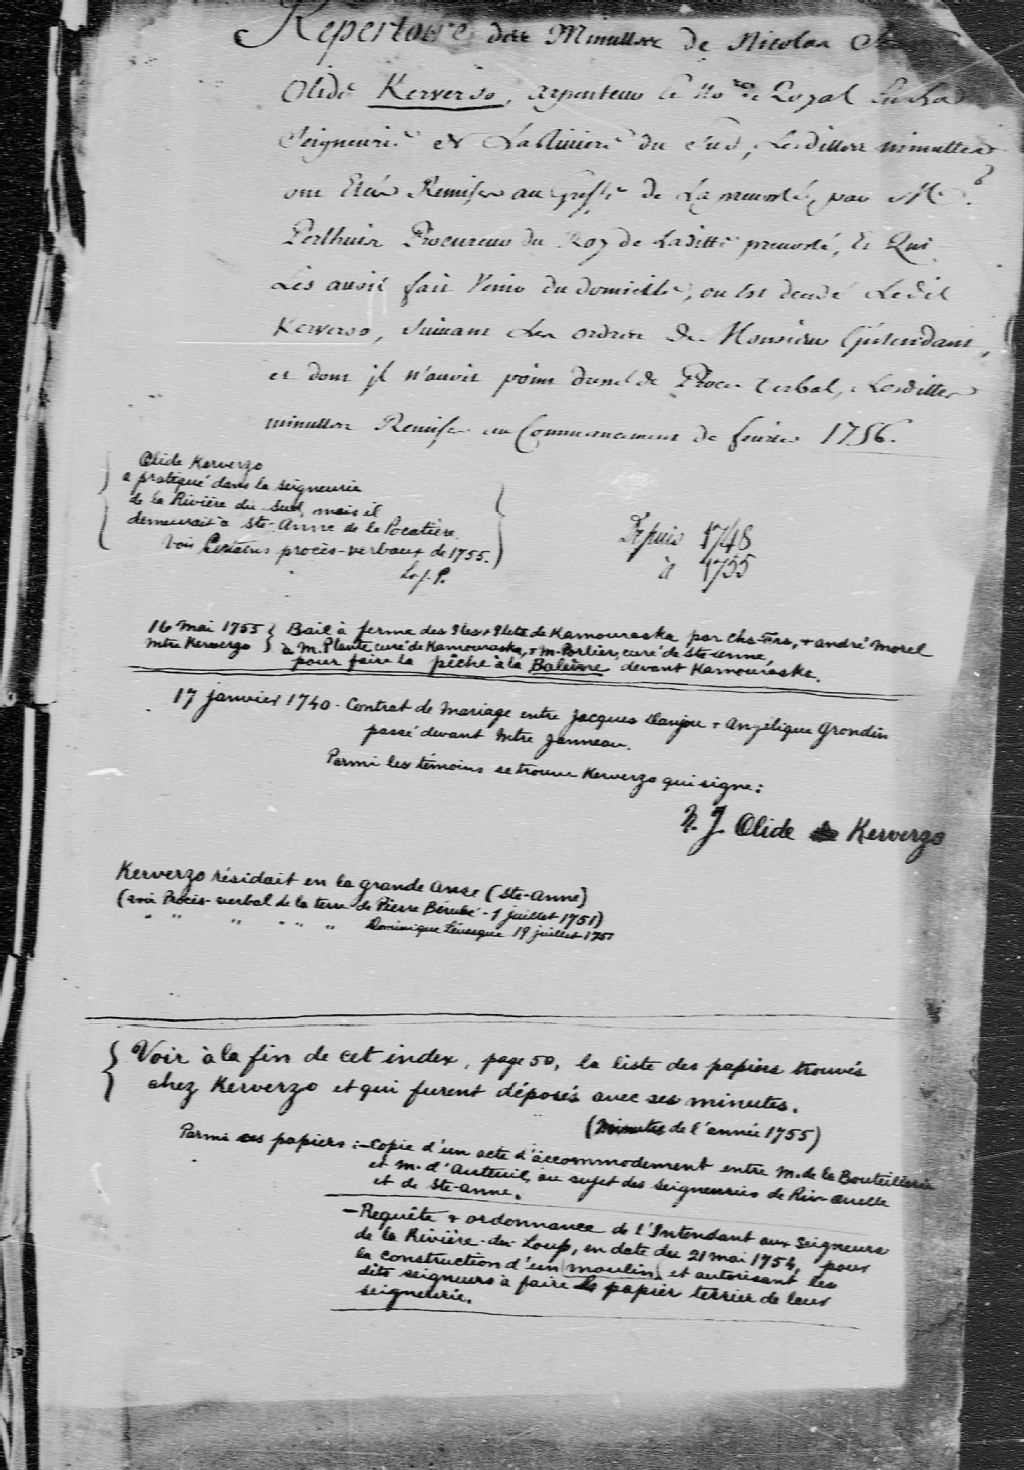 Repertoire des Minuttes de Nicolas
Olide Kerverso, arpenteur & No.re Royal En La
Seigneurie et La Riviere du Sud, Lesdittes minuttes
ont Etés Remises au Greffe de La prevosté, par Mr.
Perthuis Procureur du Roy de Laditte prevosté, Et Qui
Les avoit fait Venir du domicille, ou Est decedé Ledit
Kerverso, suivant Les ordres de Monsieur L'jntendant,
et dont jl n'avoit point dressé de Procès Verbal, Lesdittes
minuttes Remises au Commancement de fevrier 1756.
Olide Kerverzo
a pratiqué dans la seigneurie
de la Rivière du Sud, mais il
demeurait à Ste-Anne de la Pocatière.
Voir Certains procès-verbaux de 1755.
Depuis 1748
à 1755
16 mai 1755 { Bail à ferme des Iles & Ilets de Kamouraska par Chs-Frs, & André Morel
Mtre Kerverzo } à M. Plante, curé de Kamouraska, & M. Porlier, curé de Ste-Anne,
pour faire la pêche à la Baleine devant Kamouraska.
17 janvier 1740 - Contrat de mariage entre Jacques Danjou & Angélique Grondin
passé devant Mtre Janneau.
Parmi les témoins se trouve Kerverzo qui signe:
N. J Olide de Kerverzo
Kerverzo résidait en la grande Anse (Ste-Anne)
(voir Procès-verbal de la terre de Pierre Bérubé - 1 juillet 1751)
" " " " " " Dominique Lévesque 19 juillet 1751
{ Voir à la fin de cet index, page 50, la liste des papiers trouvés
chez Kerverzo et qui furent déposés avec ses minutes.
(Minutes de l'année 1755)
Parmi ces papiers: - Copie d'un acte d'accommodement entre M. de la Bouteillerie
et M. d'Auteuil, au sujet des Seigneuries de Riv-Ouelle
et de Ste-Anne.
- Requête & ordonnance de l'Intendant aux Seigneurs
de la Rivière-du-Loup, en date du 21 mai 1754, pour
la construction d'un moulin, et autorisant les
dits seigneurs à faire le papier terrier de leur
seigneurie.